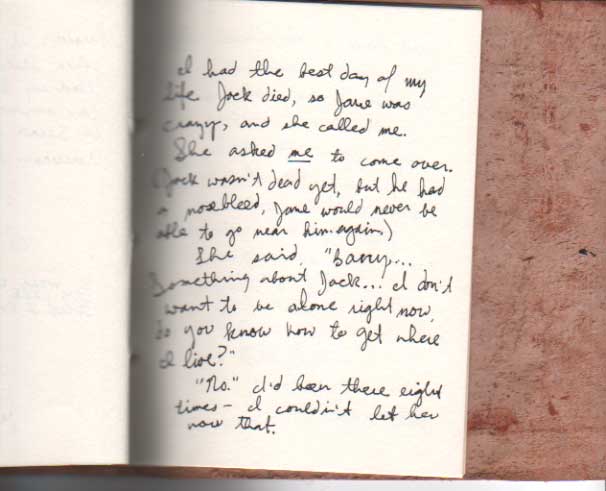 I had the best day of my
life. Jack died, so Jane was
crazy, and she called me.
She asked me to come over.
(Jack wasn't dead yet, but he had
a nosebleed, Jane would never be
able to go near him again.)
She said, "Barry...
Something about Jack... I don't
want to be alone right now,
do you know how to get where
I live?"
"No." I'd been there eight
times – I couldn't let her
now that.